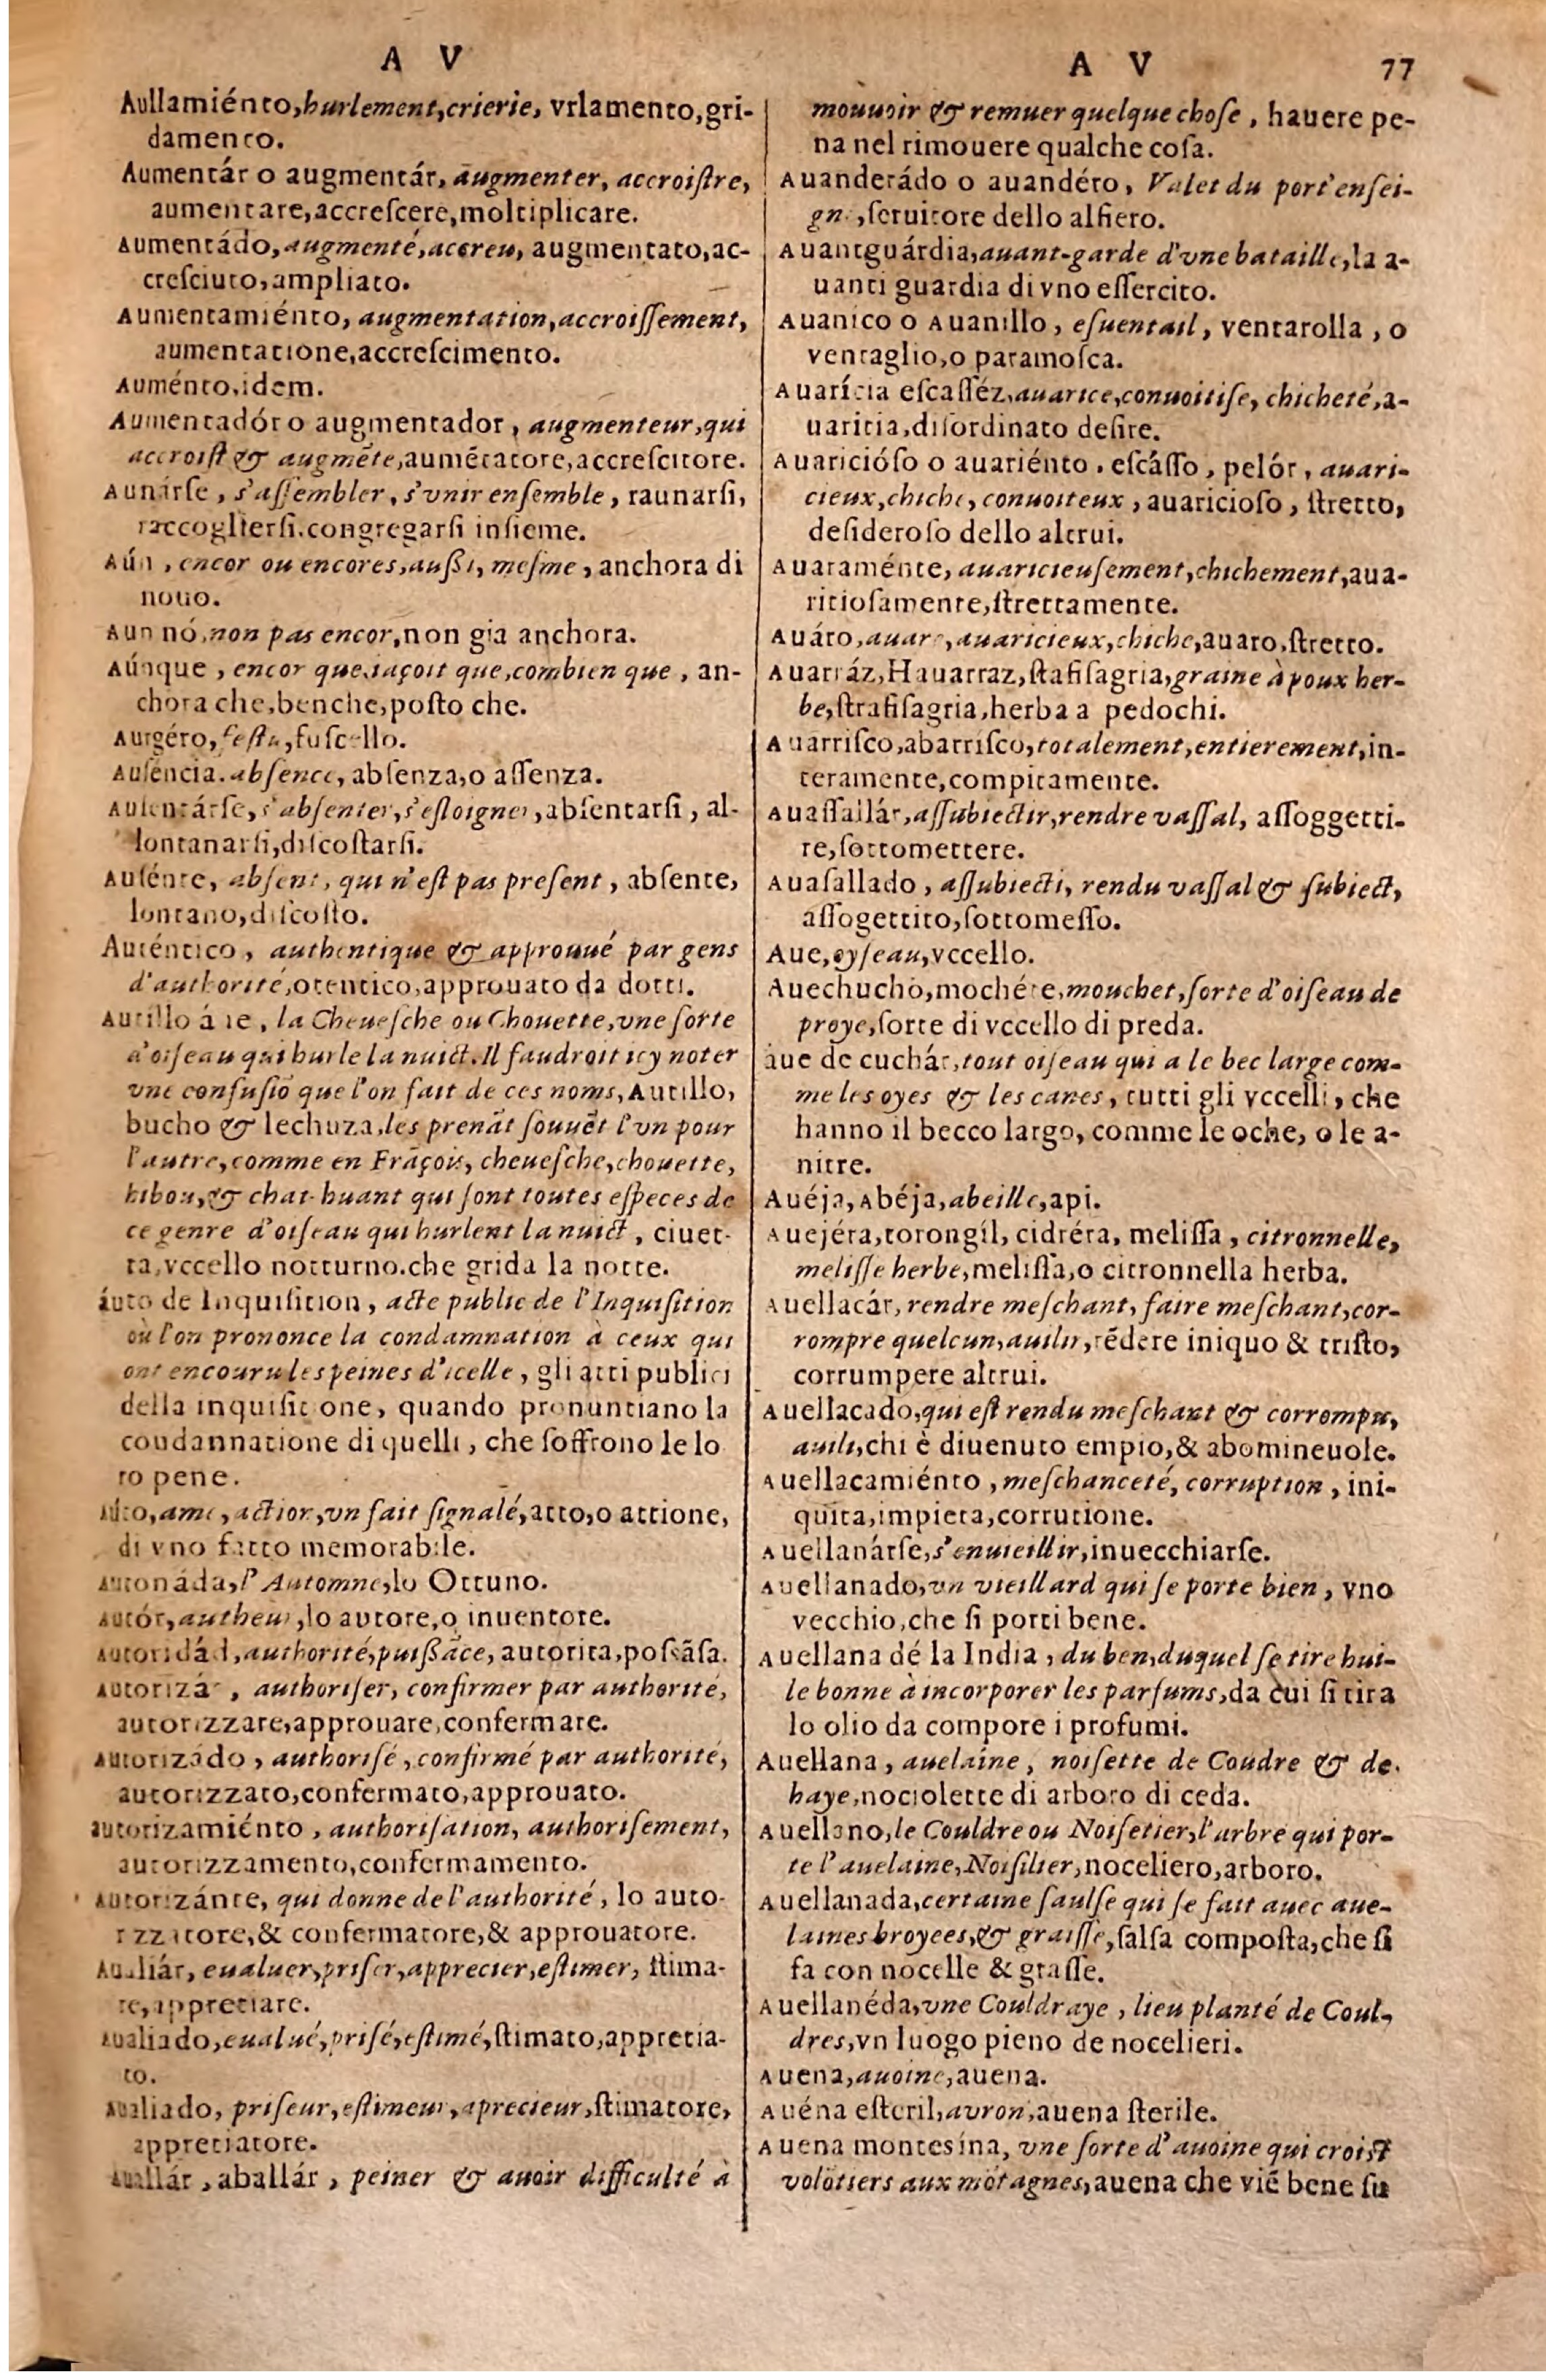 A V
Aullamiénto,hurlement,crierie, vrlamento,gri-
damento.
Aumentár o augmentár, augmenter, accroiſtre,
aumentare,accreſcere,moltiplicare.
Aumentádo,augmenté,accreu, augmentato,ac-
creſciuto,ampliato.
Aumentamiénto, augmentation,accroiſſement,
aumentatione,accreſcimento.
Auménto,idem.
Aumentadór o augmentador, augmenteur,qui
accroiſt & augmẽte,aumẽtatore,accreſcitore.
Aunárſe, s'aſſembler, s'vnir enſemble, raunarſi,
raccoglierſi.congregarſi inſieme.
Aún, encor ou encores,außi, meſme, anchora di
nouo.
Aun nó,non pas encor,non gia anchora.
Aúnque, encor que,iaçoit que,combien que, an-
chora che,benche,poſto che.
Aurgéro, feſtu,fuſcello.
Auſéncia.abſence, abſenza,o aſſenza.
Auſentárſe,s'abſenter,s'eſloigner,abſentarſi, al-
lontanarſi,diſcoſtarſi.
Auſénte, abſent, qui n'eſt pas preſent, abſente,
lontano,diſcoſto.
Auténtico, authentique & approuué par gens
d'authorité,otentico,approuato da dotti.
Autillo áue, la Cheueſche ou Chouette,vne ſorte
d'oiſeau qui hurle la nuict.Il faudroit icy noter
vne confuſiõ que l'on fait de ces noms, Autillo,
bucho & lechuza,les prenãt ſouuẽt l'vn pour
l'autre,comme en Frãçois, cheueſche,chouette,
hibou,& chat-huant qui ſont toutes eſpeces de
ce genre d'oiſeau qui hurlent la nuict, ciuet-
ta,vccello notturno.che grida la notte.
áuto de Inquiſition, acte public de l'Inquiſition
où l'on prononce la condamnation à ceux qui
ont encouru les peines d'icelle, gli atti publici
della inquiſitione, quando pronuntiano la
coudannatione di quelli, che ſoffrono le lo
ro pene.
Auto, acte, action,vn fait ſignalé,atto,o attione,
di vno fatto memorabile.
Autonáda,l'Automne,lo Ottuno.
Autór,autheur,lo autore,o inuentore.
Autoridád,authorité,puißãce, autorita,poſsãſa.
Autorizár, authoriſer, confirmer par authorité,
autorizzare,approuare,confermare.
Autorizádo, authoriſé, confirmé par authorité,
autorizzato,confermato,approuato.
autorizamiénto, authoriſation, authoriſement,
autorizzamento,confermamento.
Autorizánte, qui donne de l'authorité, lo auto-
rizzatore,& confermatore,& approuatore.
Aualiár, eualuer,priſer,apprecier,eſtimer, ſtima-
re,appretiare.
Aualiado,eualué,priſé,eſtimé,ſtimato,appretia-
to.
Aualiado, priſeur,eſtimeur,aprecieur,ſtimatore,
appretiatore.
Auallár, aballár, peiner & auoir difficulté à
A V 77
mouuoir & remuer quelque choſe, hauere pe-
na nel rimouere qualche coſa.
Auanderádo o auandéro, Valet du port'enſei-
gne,ſeruitore dello alfiero.
Auantguárdia,auant-garde d'vne bataille,la a-
uanti guardia di vno eſſercito.
Auanico o Auanillo, eſuentail, ventarolla, o
ventaglio,o paramoſca.
Auarícia eſcaſſéz,auarice,conuoitiſe, chicheté,a-
uaritia,diſordinato deſire.
Auaricióſo o auariénto, eſcáſſo, pelór, auari-
cieux,chiche, conuoiteux, auaricioſo, ſtretto,
deſideroſo dello altrui.
Auaraménte, auaricieuſement,chichement,aua-
ritioſamente,ſtrettamente.
Auáro,auare,auaricieux,chiche,auaro,ſtretto.
Auarráz,Hauarraz,ſtafiſagria,graine à poux her-
be,ſtrafiſagria,herba a pedochi.
Auarriſco,abarriſco,totalement,entierement,in-
teramente,compitamente.
Auaſſallár,aſſubiectir,rendre vaſſal, aſſoggetti-
re,ſottomettere.
Auaſallado, aſſubiecti, rendu vaſſal & ſubiect,
aſſogettito,ſottomeſſo.
Aue,oyſeau,vccello.
Auechucho,mochéte,mouchet,ſorte d'oiſeau de
proye,ſorte di vccello di preda.
áue de cuchár,tout oiſeau qui a le bec large com-
me les oyes & les canes, tutti gli vccelli, che
hanno il becco largo, comme le oche, o le a-
nitre.
Auéja, Abéja, abeille,api.
Auejéra,torongíl, cidréra, meliſſa, citronnelle,
meliſſe herbe,meliſſa,o citronnella herba.
Auellacár, rendre meſchant, faire meſchant,cor-
rompre quelcun,auilir,rẽdere iniquo & triſto,
corrumpere altrui.
Auellacado,qui eſt rendu meſchant & corrompu,
auili,chi è diuenuto empio,& abomineuole.
Auellacamiénto, meſchanceté, corruption, ini-
quita,impieta,corrutione.
Auellanárſe,s'enuieillir,inuecchiarſe.
Auellanado,vn vieillard qui ſe porte bien, vno
vecchio,che ſi porti bene.
Auellana dé la India, du ben,duquel ſe tire hui-
le bonne à incorporer les parfums,da cui ſi tira
lo olio da compore i profumi.
Auellana, auelaine, noiſette de Coudre & de.
haye,nociolette di arboro di ceda.
Auellano,le Couldre ou Noiſetier,l'arbre qui por-
te l'auelaine,Noiſilier,noceliero,arboro.
Auellanada,certaine ſaulſe qui ſe fait auec aue-
laines broyees,& graiſſe,ſalſa compoſta,che ſi
fa con nocelle & graſſe.
Auellanéda,vne Couldraye, lieu planté de Coul-
dres,vn luogo pieno de nocelieri.
Auena,auoine,auena.
Auéna eſteril,avron,auena ſterile.
Auena montesína, vne ſorte d'auoine qui croiſt
volõtiers aux mõtagnes,auena che viẽ bene ſu